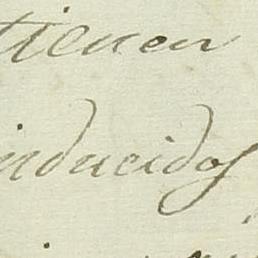 tienen
inducidos